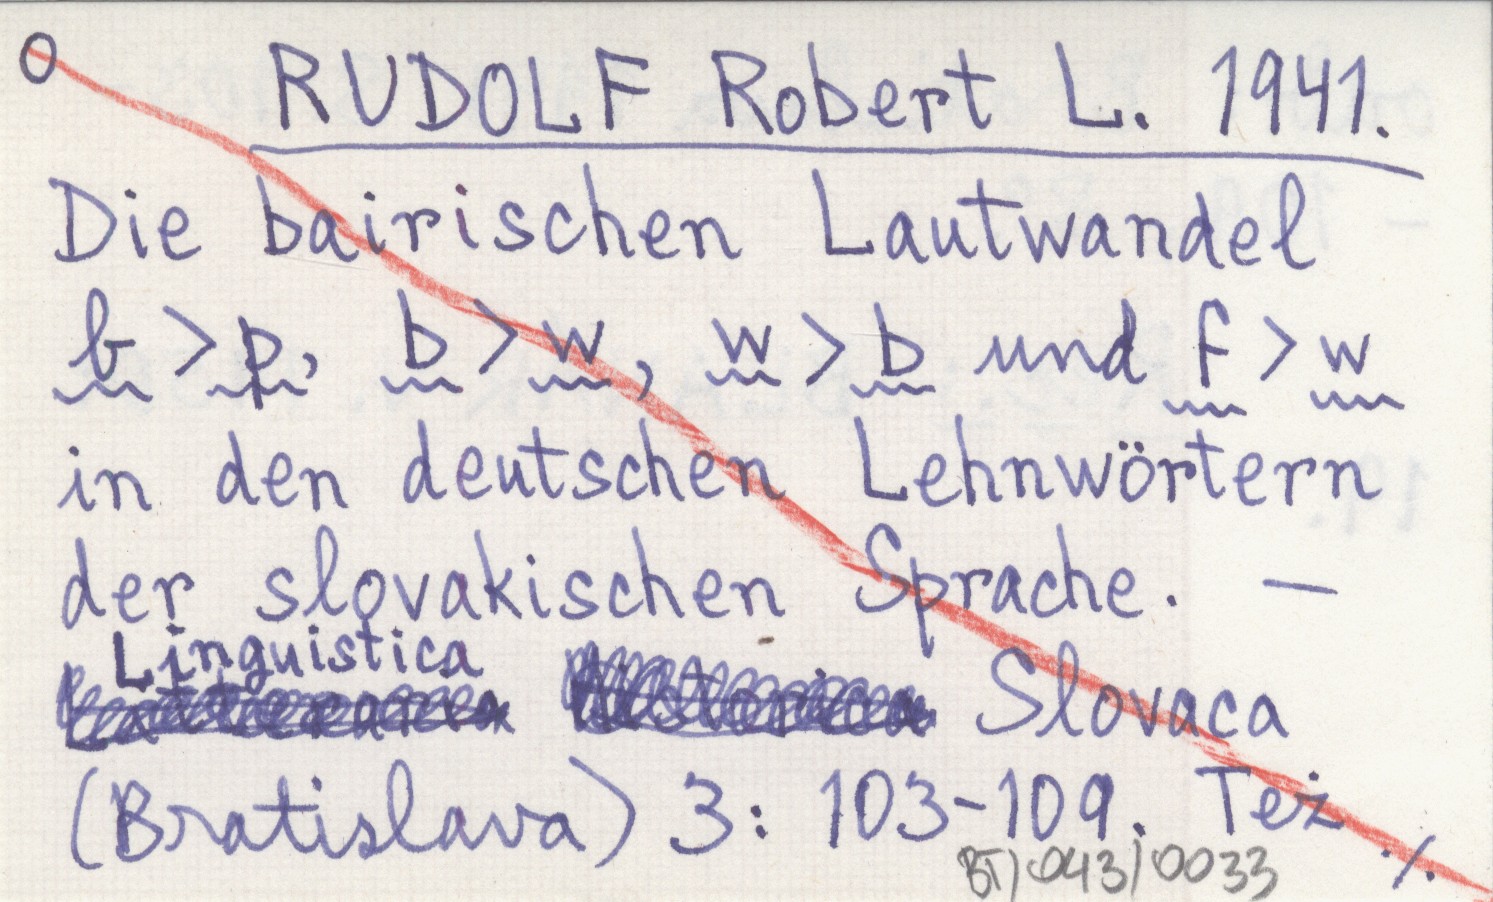 O RUDOLF Robert L. 1941.
Die bairischen Lautwandel
b > p, b > w, w > b und f > w
in den deutschen Lehnwörtern
der slovakischen Sprache. —
Linguistica
Slovaca
(Bratislava) 3: 103-109. Też ./.
BT/043/0033